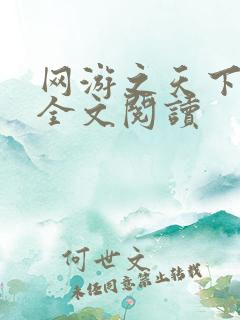 网游之天下
全文閱讀
何世文
未经同意禁止转载